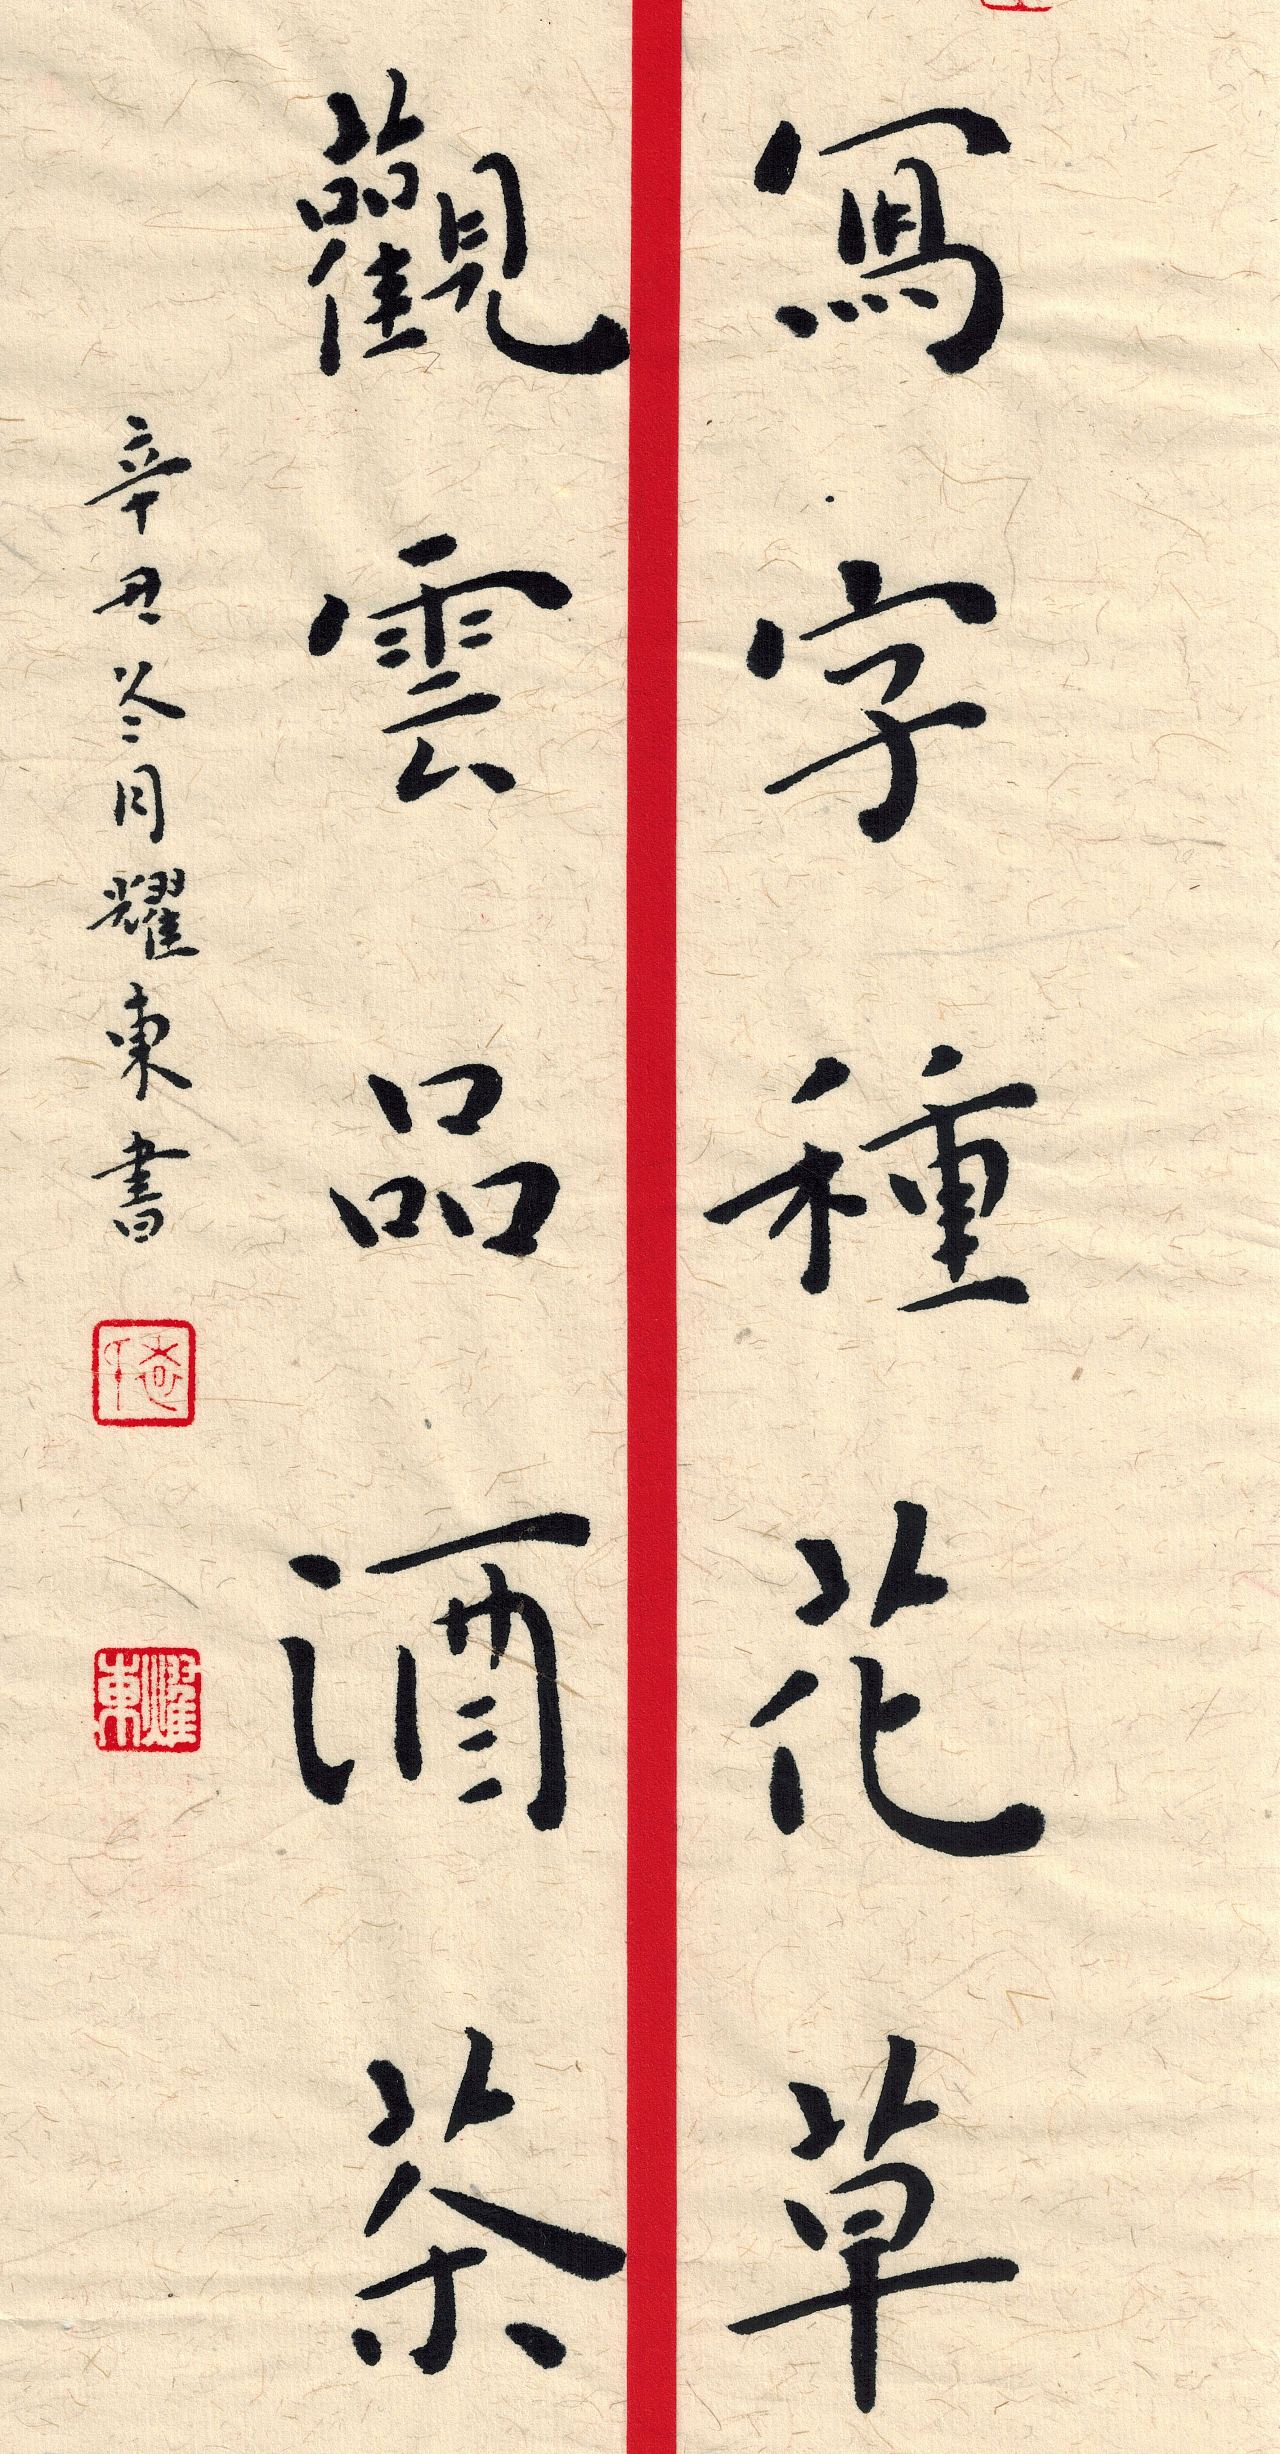 寫字種花草
觀雲品酒茶
辛丑冬月耀東書
耀東